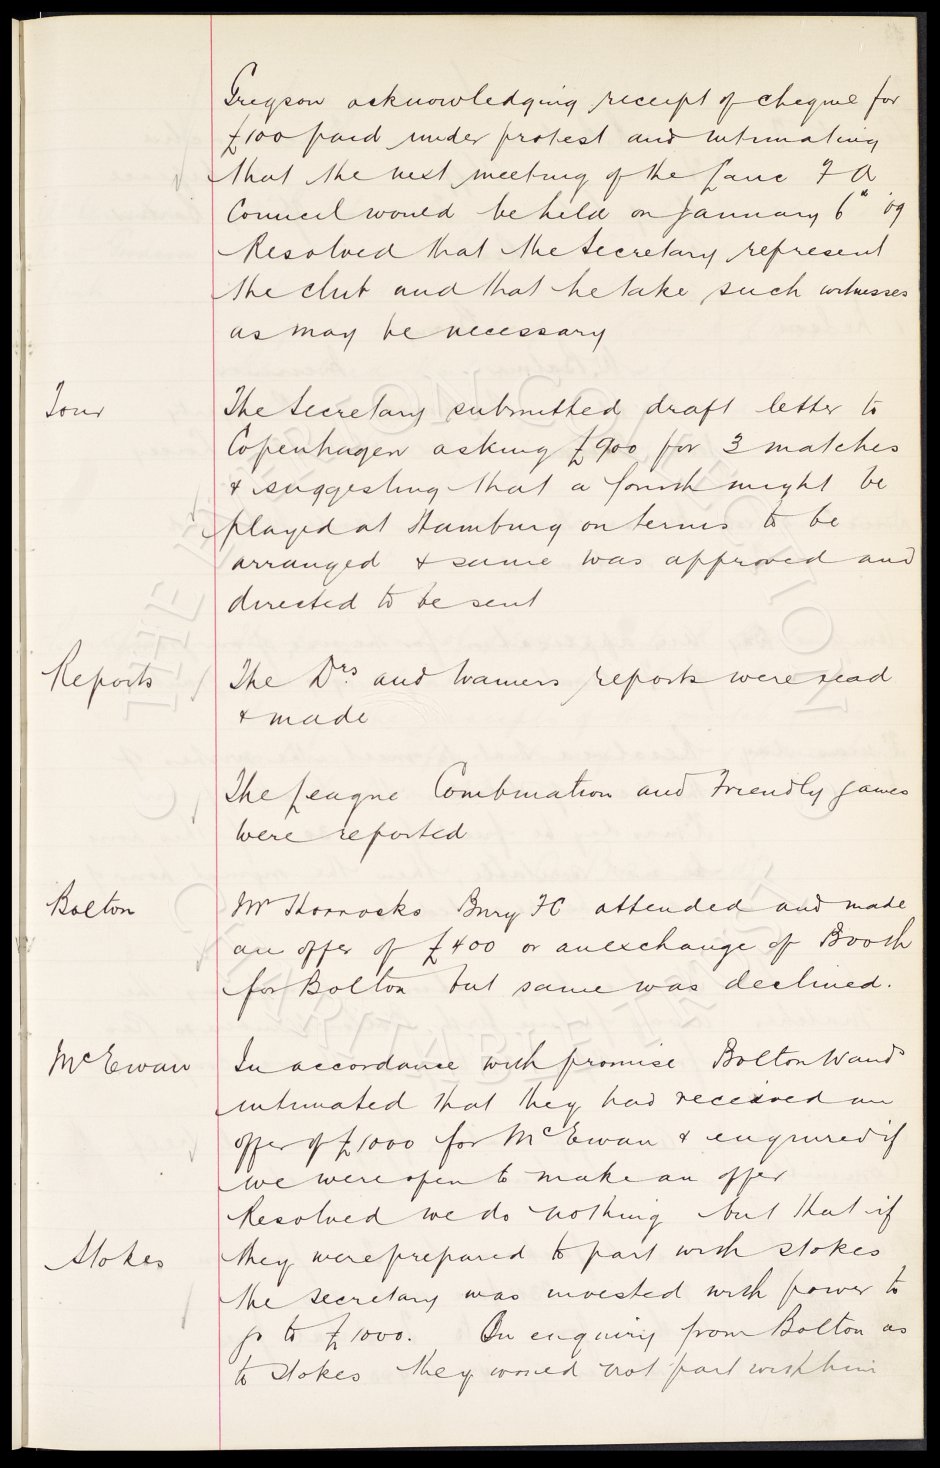 Gregson acknowledging receipt of cheque for
£100 paid under protest and intimating
that the next meeting of the Lanc F A
Council would be held on January 6th '09
Resolved that the Secretary represent
the club and that he take such witnesses
as may be necessary
Tour
The Secretary submitted draft letter to
Copenhagen asking £900 for 3 matches
& suggesting that a fourth might be
played at Hamburg on terms to be
arranged & same was approved and
directed to be sent
Reports
The Drs and trainers reports were read
& made
The League Combination and Friendly games
were reported
Bolton
Mr Horrocks Bury FC attended and made
an offer of £400 or an exchange of Booth
for Bolton but same was declined.
McEwan
In accordance with promise Bolton Wands
intimated that they had received an
offer of £1000 for McEwan & enquired if
we were open to make an offer
Resolved we do nothing but that if
Stokes
they were prepared to part with Stokes
the Secretary was invested with power to
go to £1000. On enquiry from Bolton as
to Stokes they would not part with him